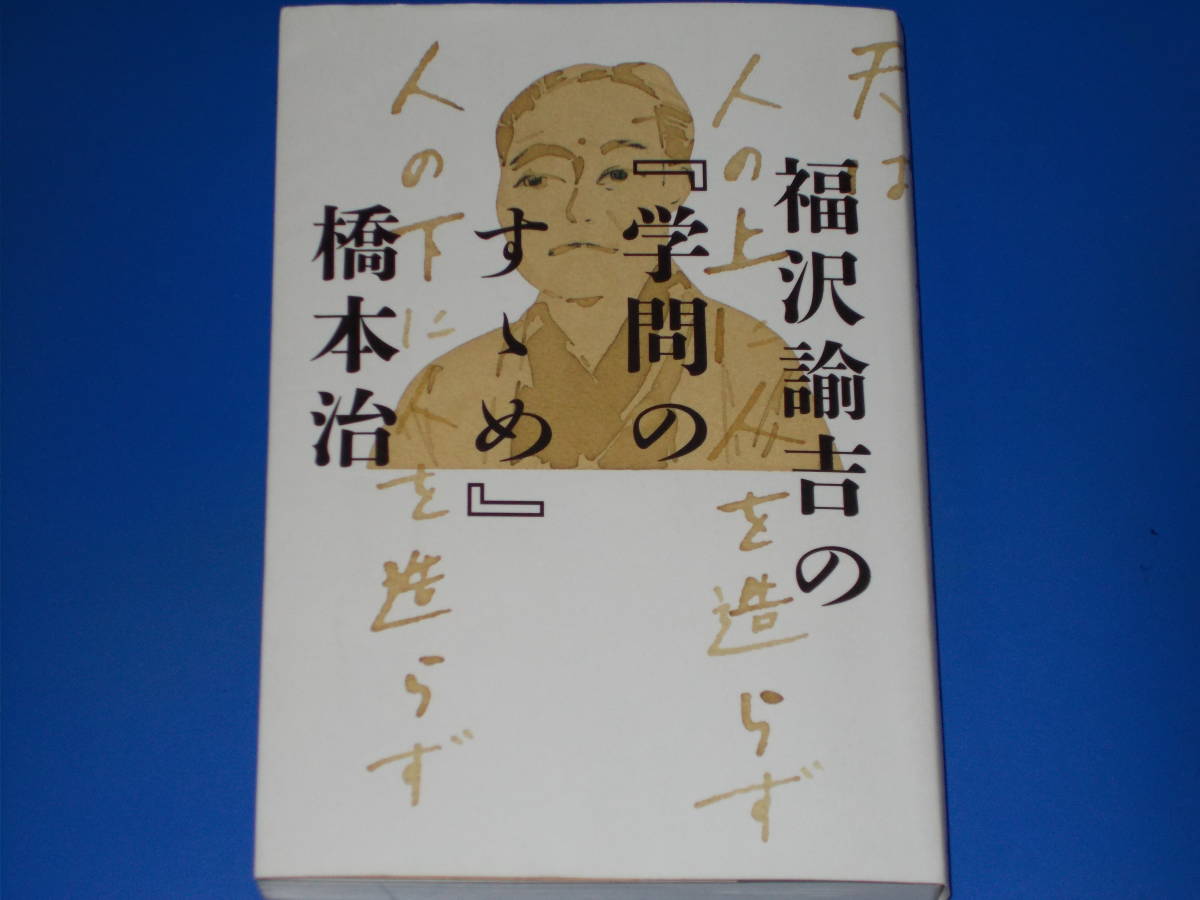 福沢諭吉の
『学問の
すゝめ』
橋本治
天は
人の上に人を造らず
人の下に人を造らず